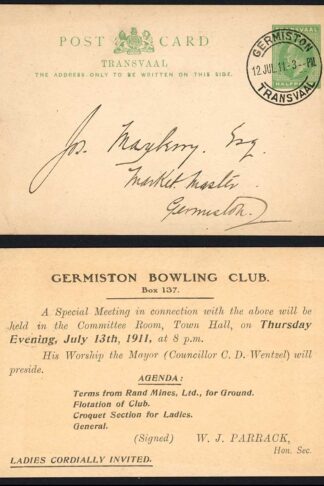 POST CARD
TRANSVAAL
THE ADDRESS ONLY TO BE WRITTEN ON THIS SIDE.
TRANSVAAL
HALFPENNY
GERMISTON
12 JUL 11 - 3 - PM
TRANSVAAL
Jos. Mayberry. Esq
Market Master
Germiston.
GERMISTON BOWLING CLUB.
Box 137.
A Special Meeting in connection with the above will be
held in the Committee Room, Town Hall, on Thursday
Evening, July 13th, 1911, at 8 p.m.
His Worship the Mayor (Councillor C. D. Wentzel) will
preside.
AGENDA:
Terms from Rand Mines, Ltd., for Ground.
Flotation of Club.
Croquet Section for Ladies.
General.
(Signed) W. J. PARRACK,
Hon. Sec.
LADIES CORDIALLY INVITED.